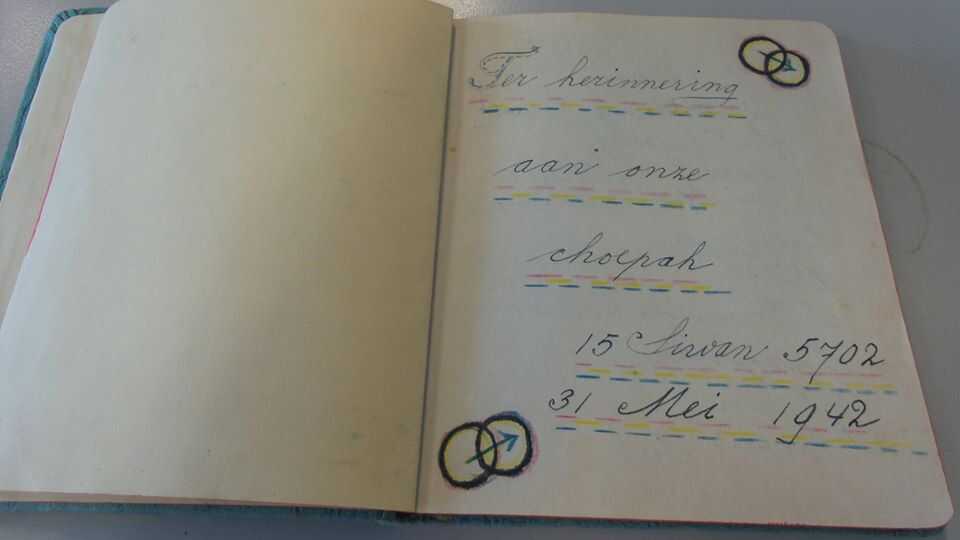 Ter herinnering
aan onze
choepah
15 Siwan 5702
31 Mei 1942